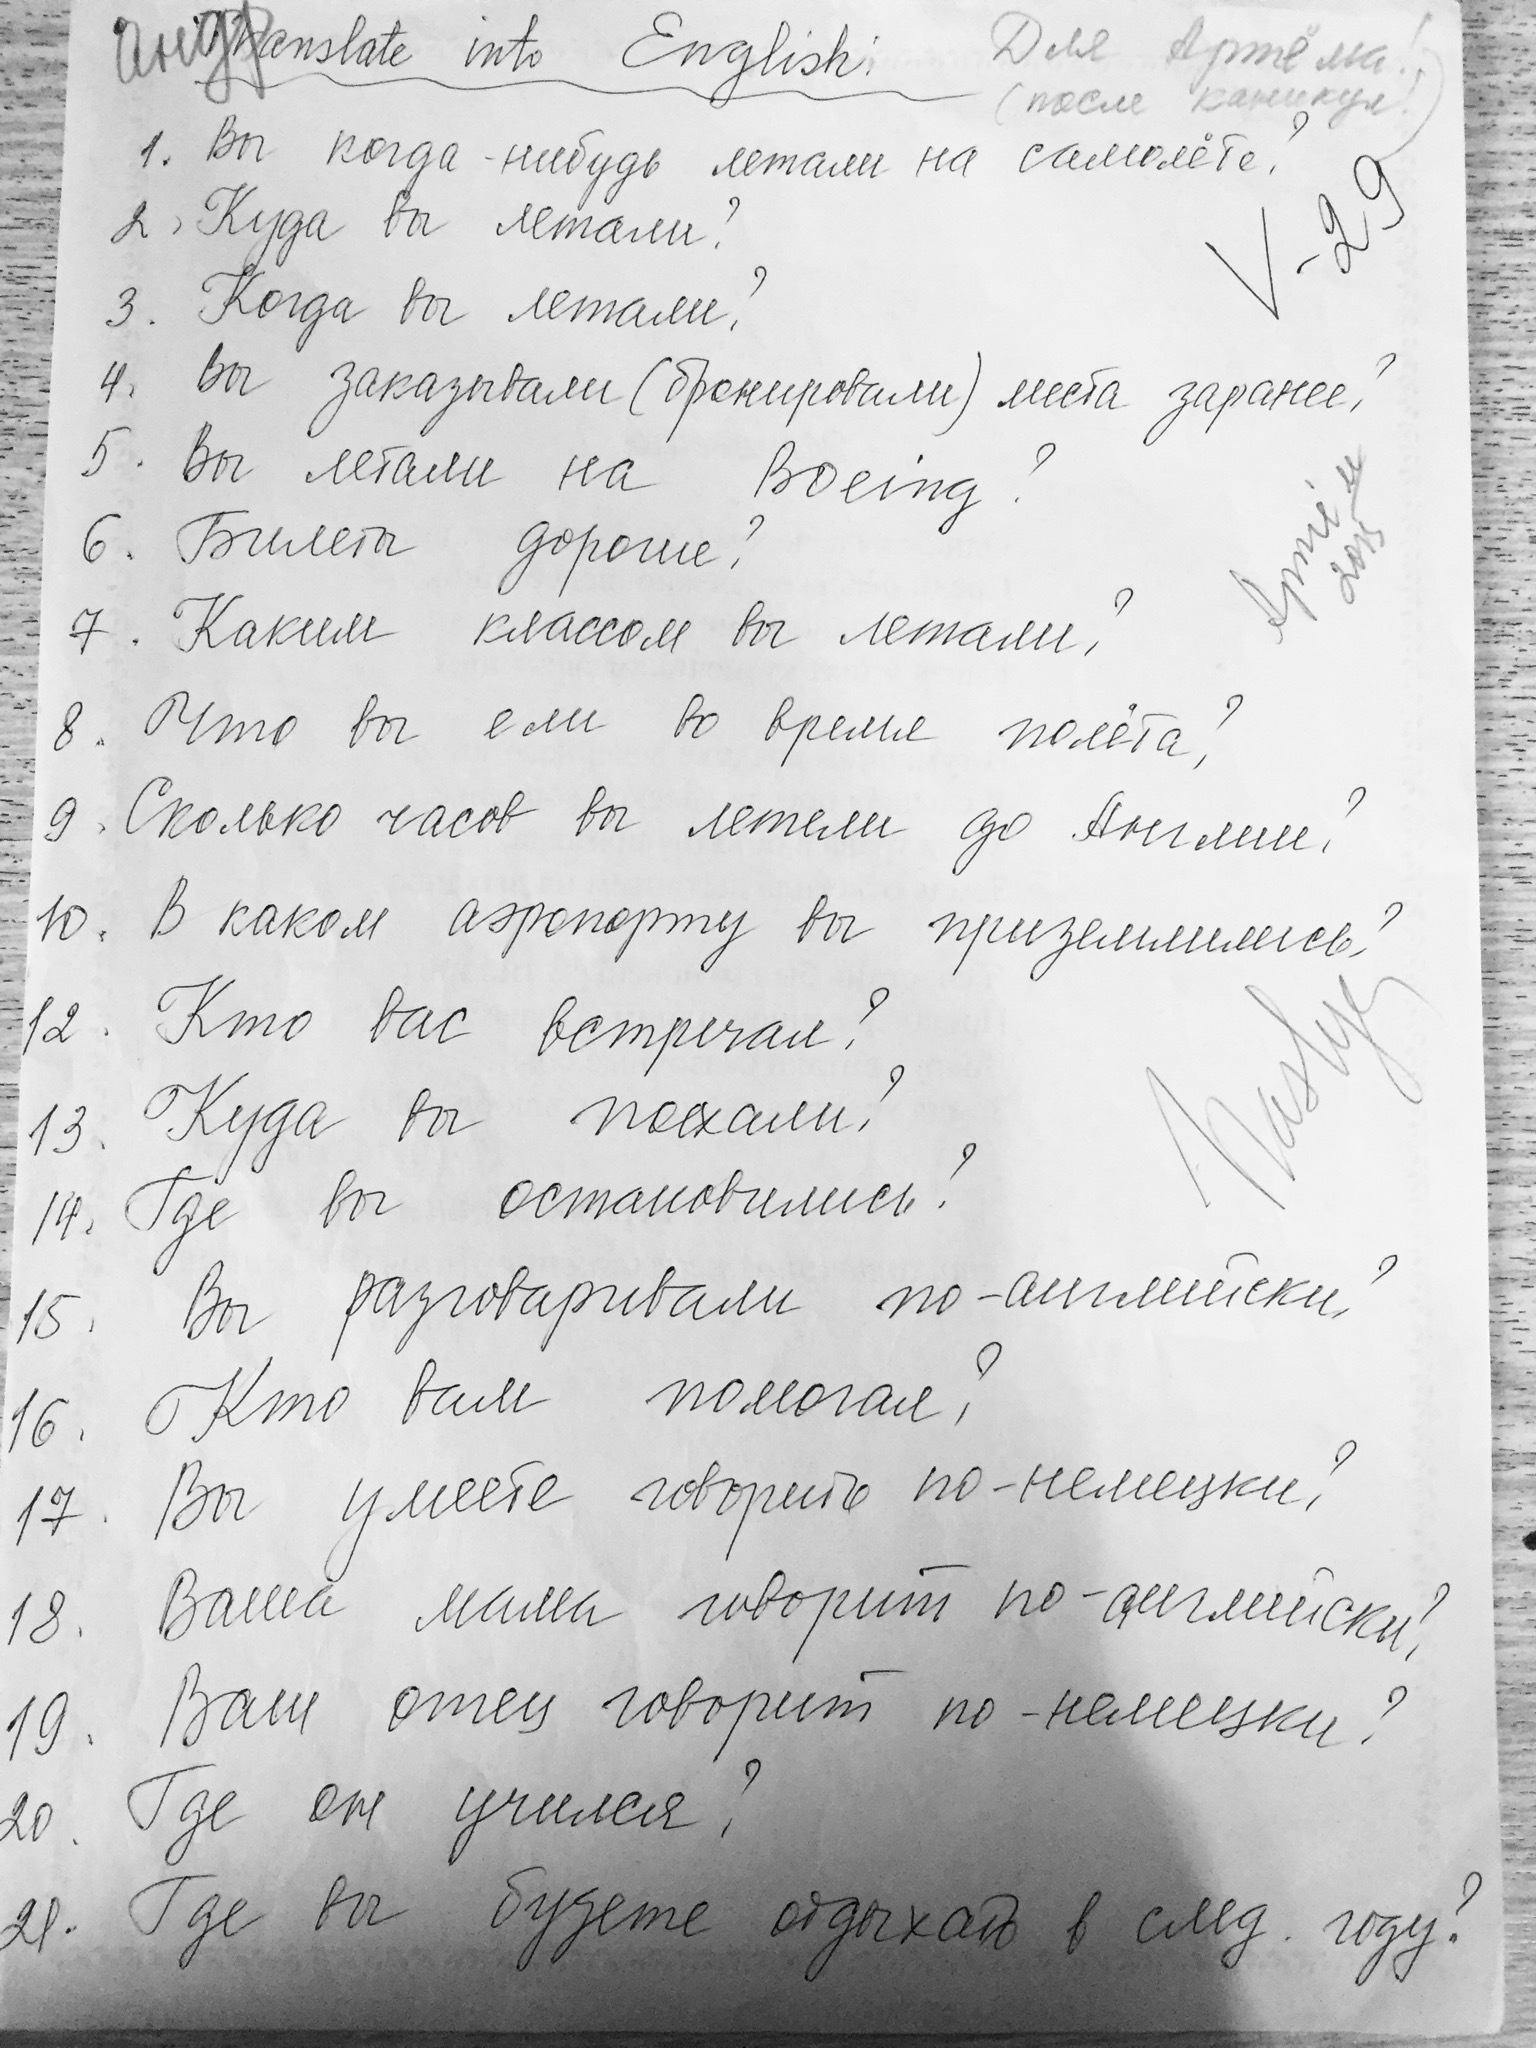 Translate into English:
Для Артёма!
(после каникул!)
1. Вы когда-нибудь летали на самолёте?
2. Куда вы летали?
V-29
3. Когда вы летали?
4. Вы заказывали (бронировали) места заранее?
5. Вы летали на Boeing?
6. Билеты дорогие?
Артём
2015
7. Каким классом вы летали?
8. Что вы ели во время полёта?
9. Сколько часов вы летели до Англии?
10. В каком аэропорту вы приземлились?
12. Кто вас встречал?
Nastya
13. Куда вы поехали?
14. Где вы остановились?
15. Вы разговаривали по-английски?
16. Кто вам помогал?
17. Вы умеете говорить по-немецки?
18. Ваша мама говорит по-английски?
19. Ваш отец говорит по-немецки?
20. Где он учился?
21. Где вы будете отдыхать в след. году?